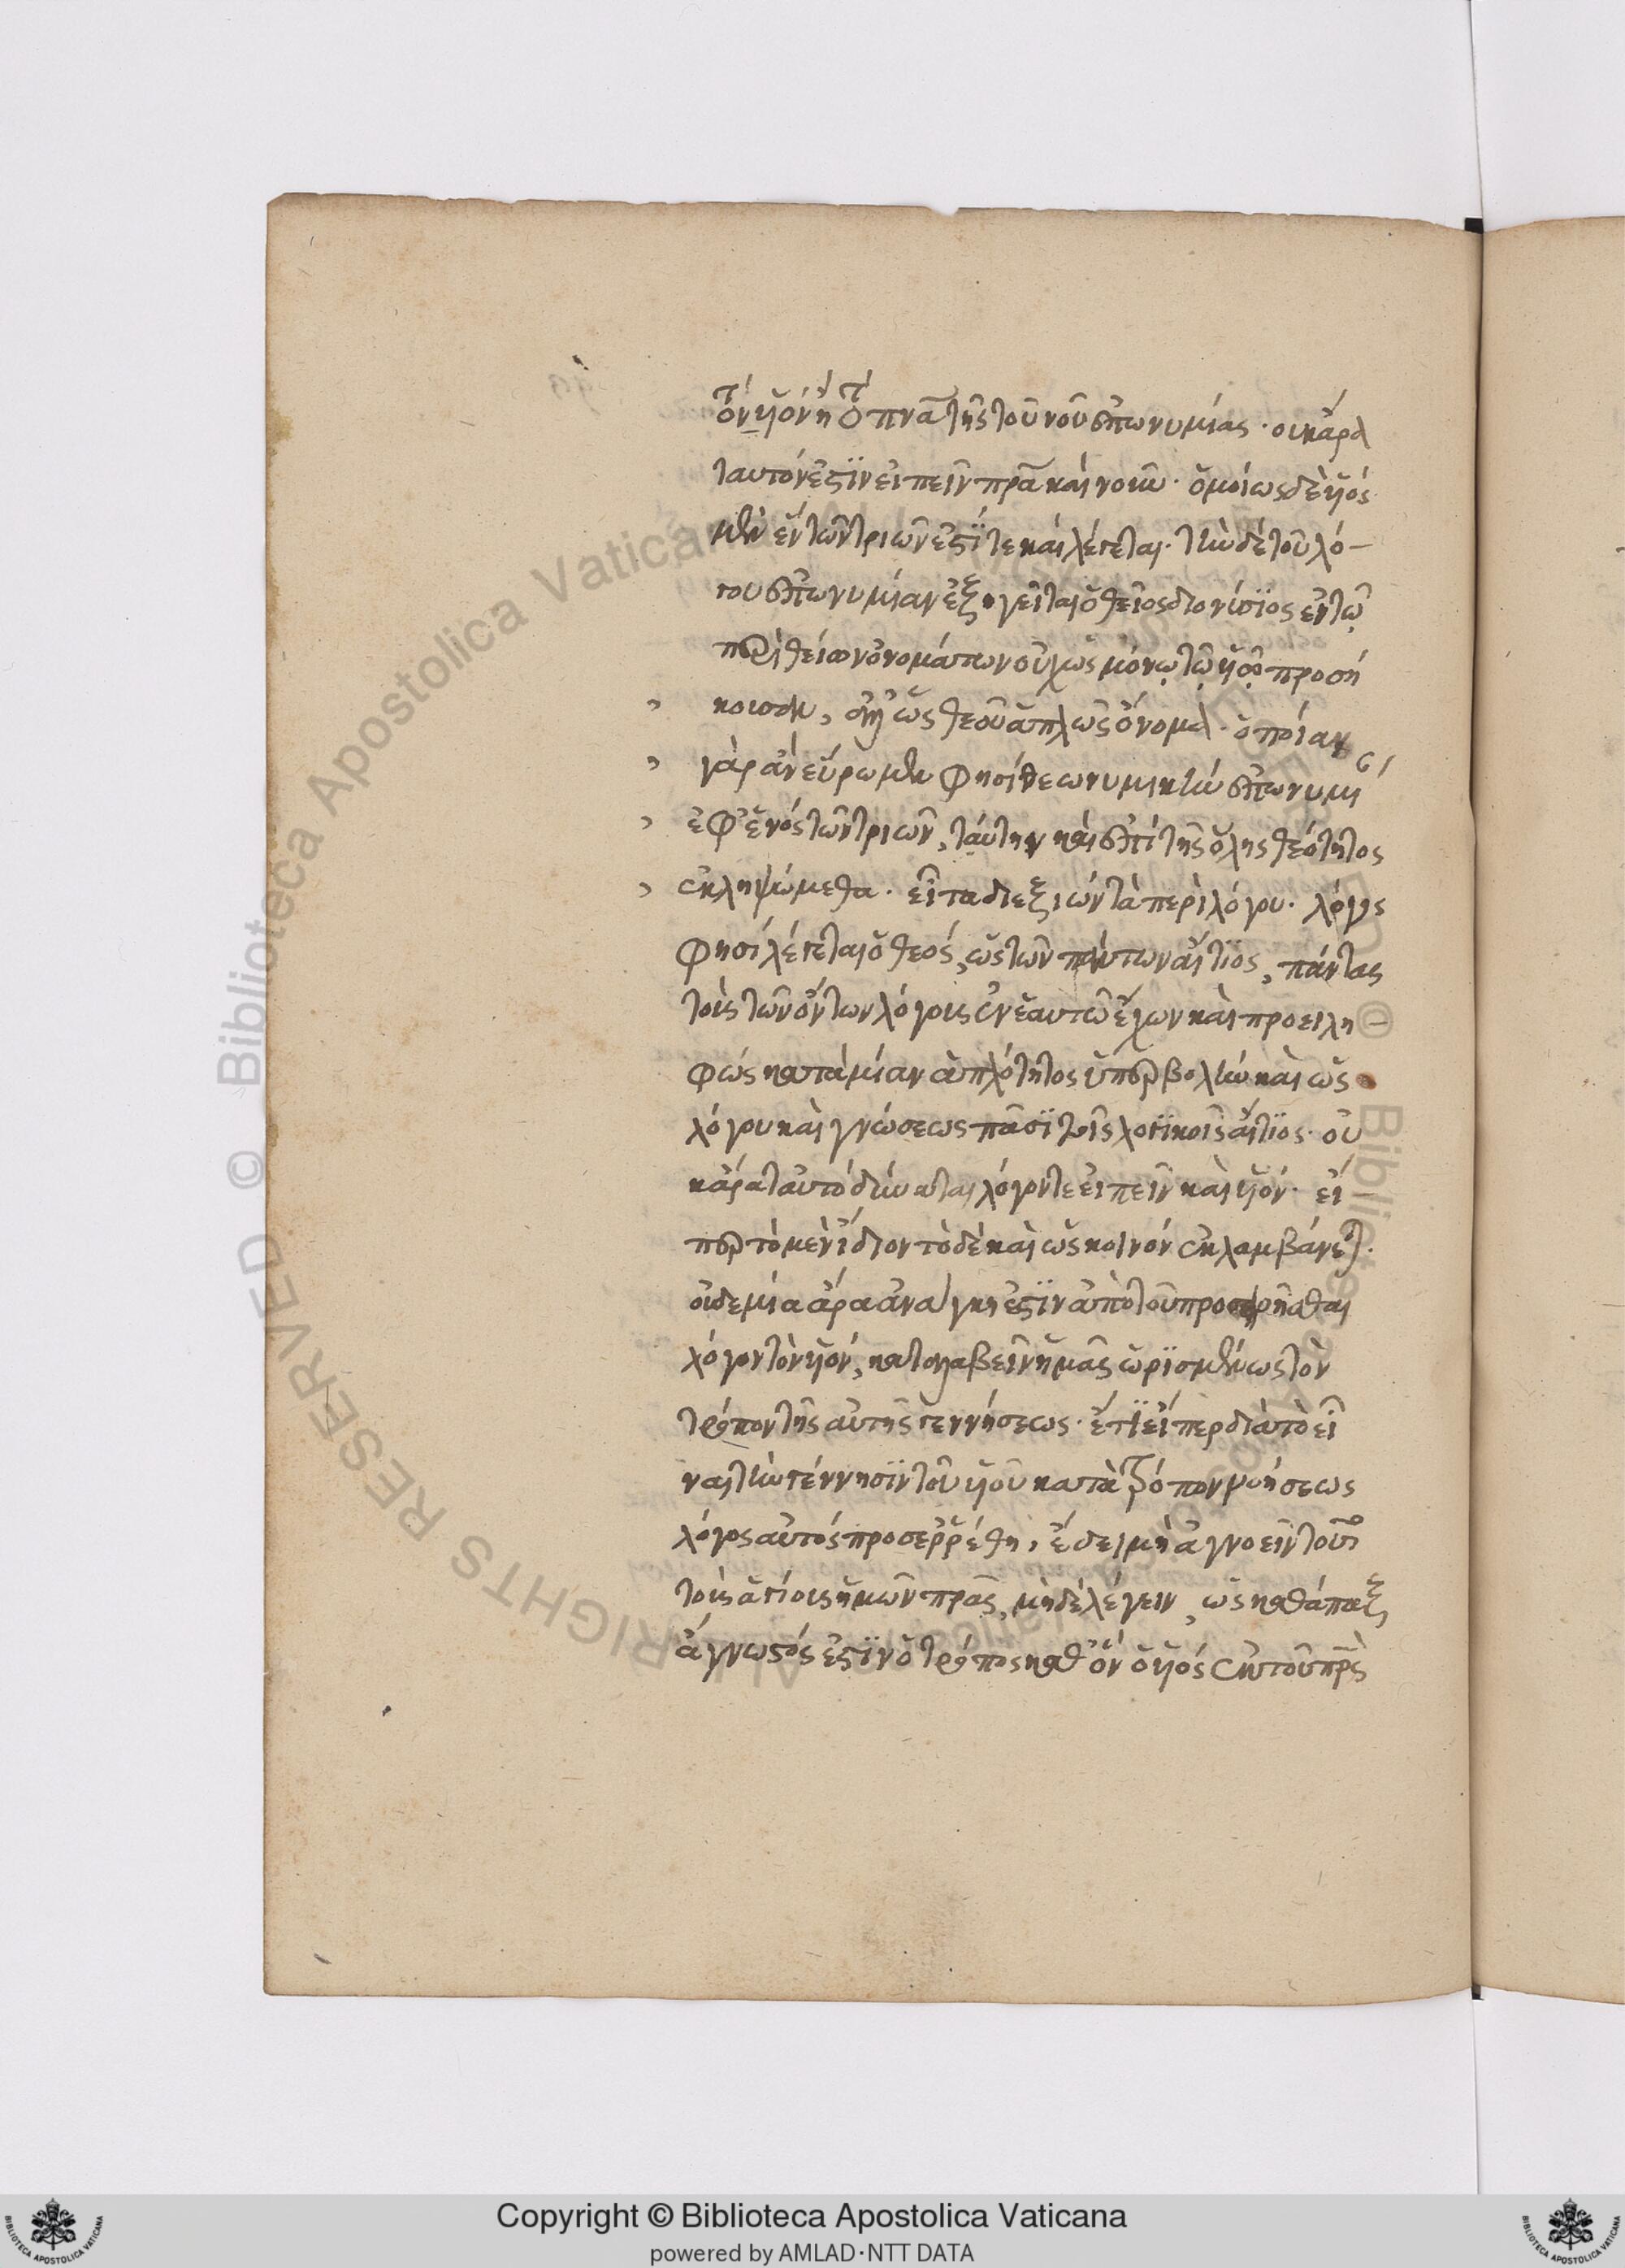 τὸν υἱόν ἢ τὸ πνα τῆς τοῦ νοῦ ἐπωνυμίας · οὐκ ἄρα
ταυτόν ἐστιν εἰπεῖν πρα καὶ νοῦν · ὁμοίως δὲ υἱός
μὲν εἷν τῶν τριῶν ἐστί τε καὶ λέγεται · τὴν δέ τοῦ λό-
γου ἐπωνυμίαν ἐξηγεῖται ὁ θεῖος διονύσιος ἐν τῷ
περὶ θείων ὀνομάτων οὐχ ὡς μόνῳ τῷ υἱῷ προσή
κουσαν, ἀλλ' ὡς θεοῦ ἁπλῶς ὄνομα · ὁποίαν
γὰρ ἂν εὕρωμεν φησί θεωνυμικὴν ἐπωνυμί
ἐφ' ἑνός τῶν τριῶν, ταύτην καὶ ἐπί τῆς ὅλης θεότητος
ἐκληψώμεθα · εἶτα διεξιών τὰ περὶ λόγου · λόγος
φησί λέγεται ὁ θεός, ὡς τῶν πάντων αἴτιος, πάντας
τοὺς τῶν ὄντων λόγους ἐν ἑαυτῶ ἔχων καὶ προειλη-
φώς κατὰ μίαν ἁπλότητος ὑπερβολὴν καὶ ὡς
λόγου καὶ γνώσεως πᾶσι τοῖς λογικοῖς αἴτιος · οὐ
κ ἄρα ταὐτό δύναται λόγον τε εἰπεῖν καὶ υἱόν · εἴ
περ τὸ μὲν ἴδιον τὸ δὲ καὶ ὡς κοινόν ἐκλαμβάνεται ·
οὐδεμία ἄρα ἀνάγκη ἐστιν ἀπὸ τοῦ προσειρῆσθαι
λόγον τὸν υἱόν, καταλαβεῖν ἡμᾶς ὡρισμένως τὸν
τρόπον τῆς αὐτῆς γεννήσεως · ἔτι εἴπερ διὰ τὸ εἶ
ναι τὴν γέννησιν τοῦ υἱοῦ κατὰ τρόπον νοήσεως
λόγος αὐτός προσερρέθη, ἔδει μὴ ἀγνοεῖν τοῦτο
τοὺς ἁγίους ἡμῶν πρας, μὴ δὲ λέγειν, ὡς καθάπαξ
ἄγνωστός ἐστιν ὁ τρόπος καθ' ὅν ὁ υἱός ἐκ τοῦ πρς
Copyright © Biblioteca Apostolica Vaticana
powered by AMLAD·NTT DATA